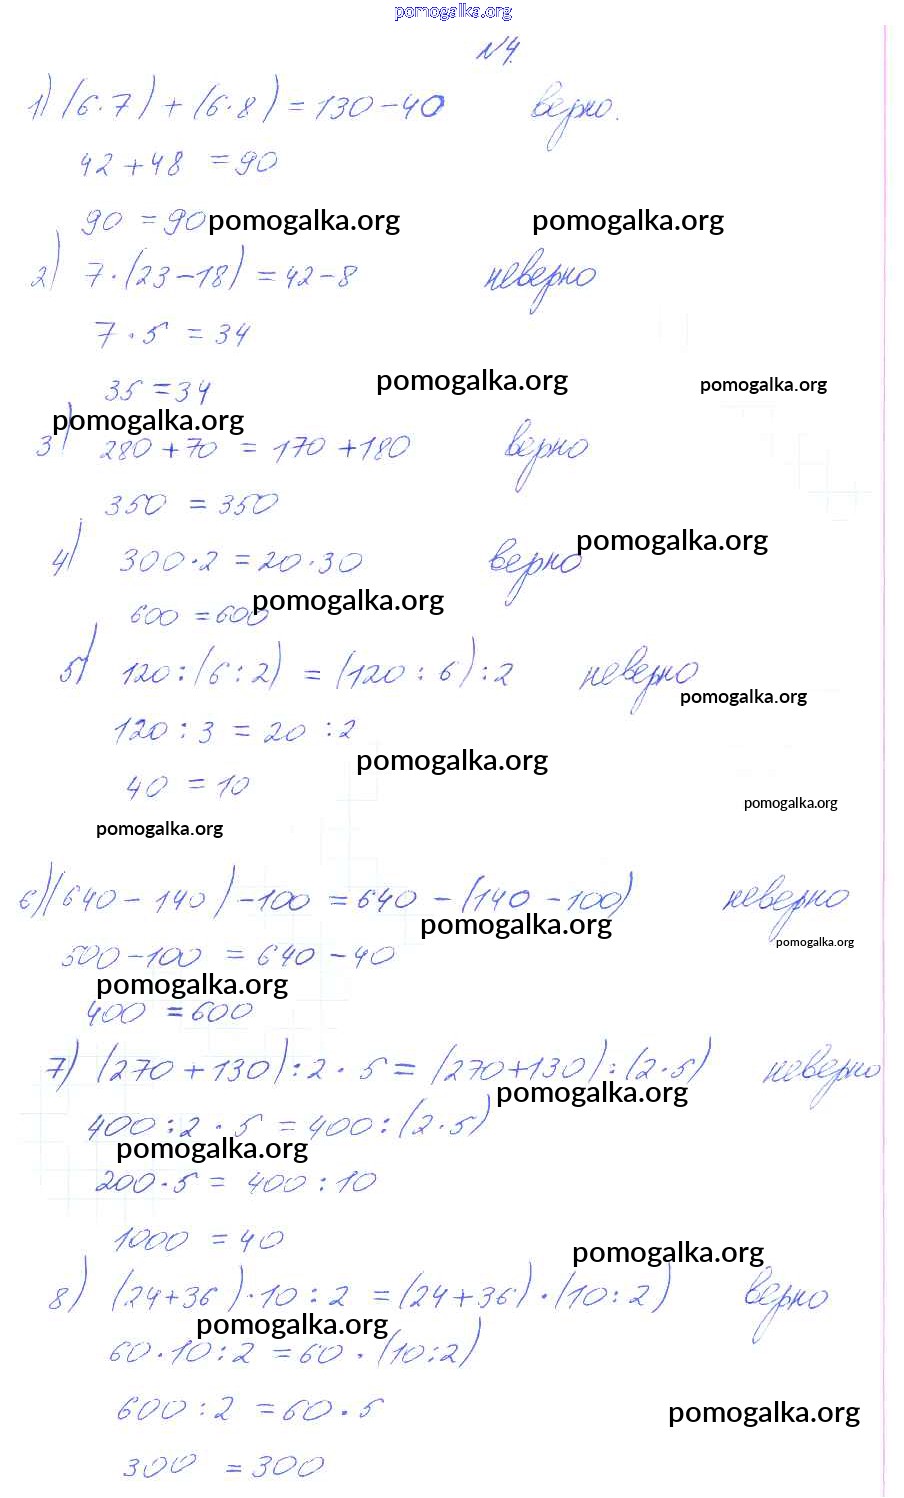 pomogalka.org
№4.
1) (6·7)+(6·8)=130-40 верно.
42+48 =90
90 =90 pomogalka.org pomogalka.org
2) 7·(23-18)=42-8 неверно
7·5 =34
pomogalka.org pomogalka.org
35=34
pomogalka.org
3) 280+70 =170+180 верно
350 =350
pomogalka.org
4) 300·2=20·30 верно
600 =600 pomogalka.org
5) 120:(6:2) =(120:6):2 неверно
pomogalka.org
120:3 =20:2
pomogalka.org
40 =10
pomogalka.org
pomogalka.org
6) (640-140)-100 =640-(140-100) неверно
pomogalka.org
pomogalka.org
500-100 =640-40
pomogalka.org
400 =600
7) (270+130):2·5=(270+130):(2·5) неверно
pomogalka.org
400:2·5 =400:(2·5)
pomogalka.org
200·5= 400:10
1000 =40
pomogalka.org
8) (24+36)·10:2 =(24+36)·(10:2) верно
pomogalka.org
60·10:2 =60·(10:2)
600:2 =60·5
pomogalka.org
300 =300